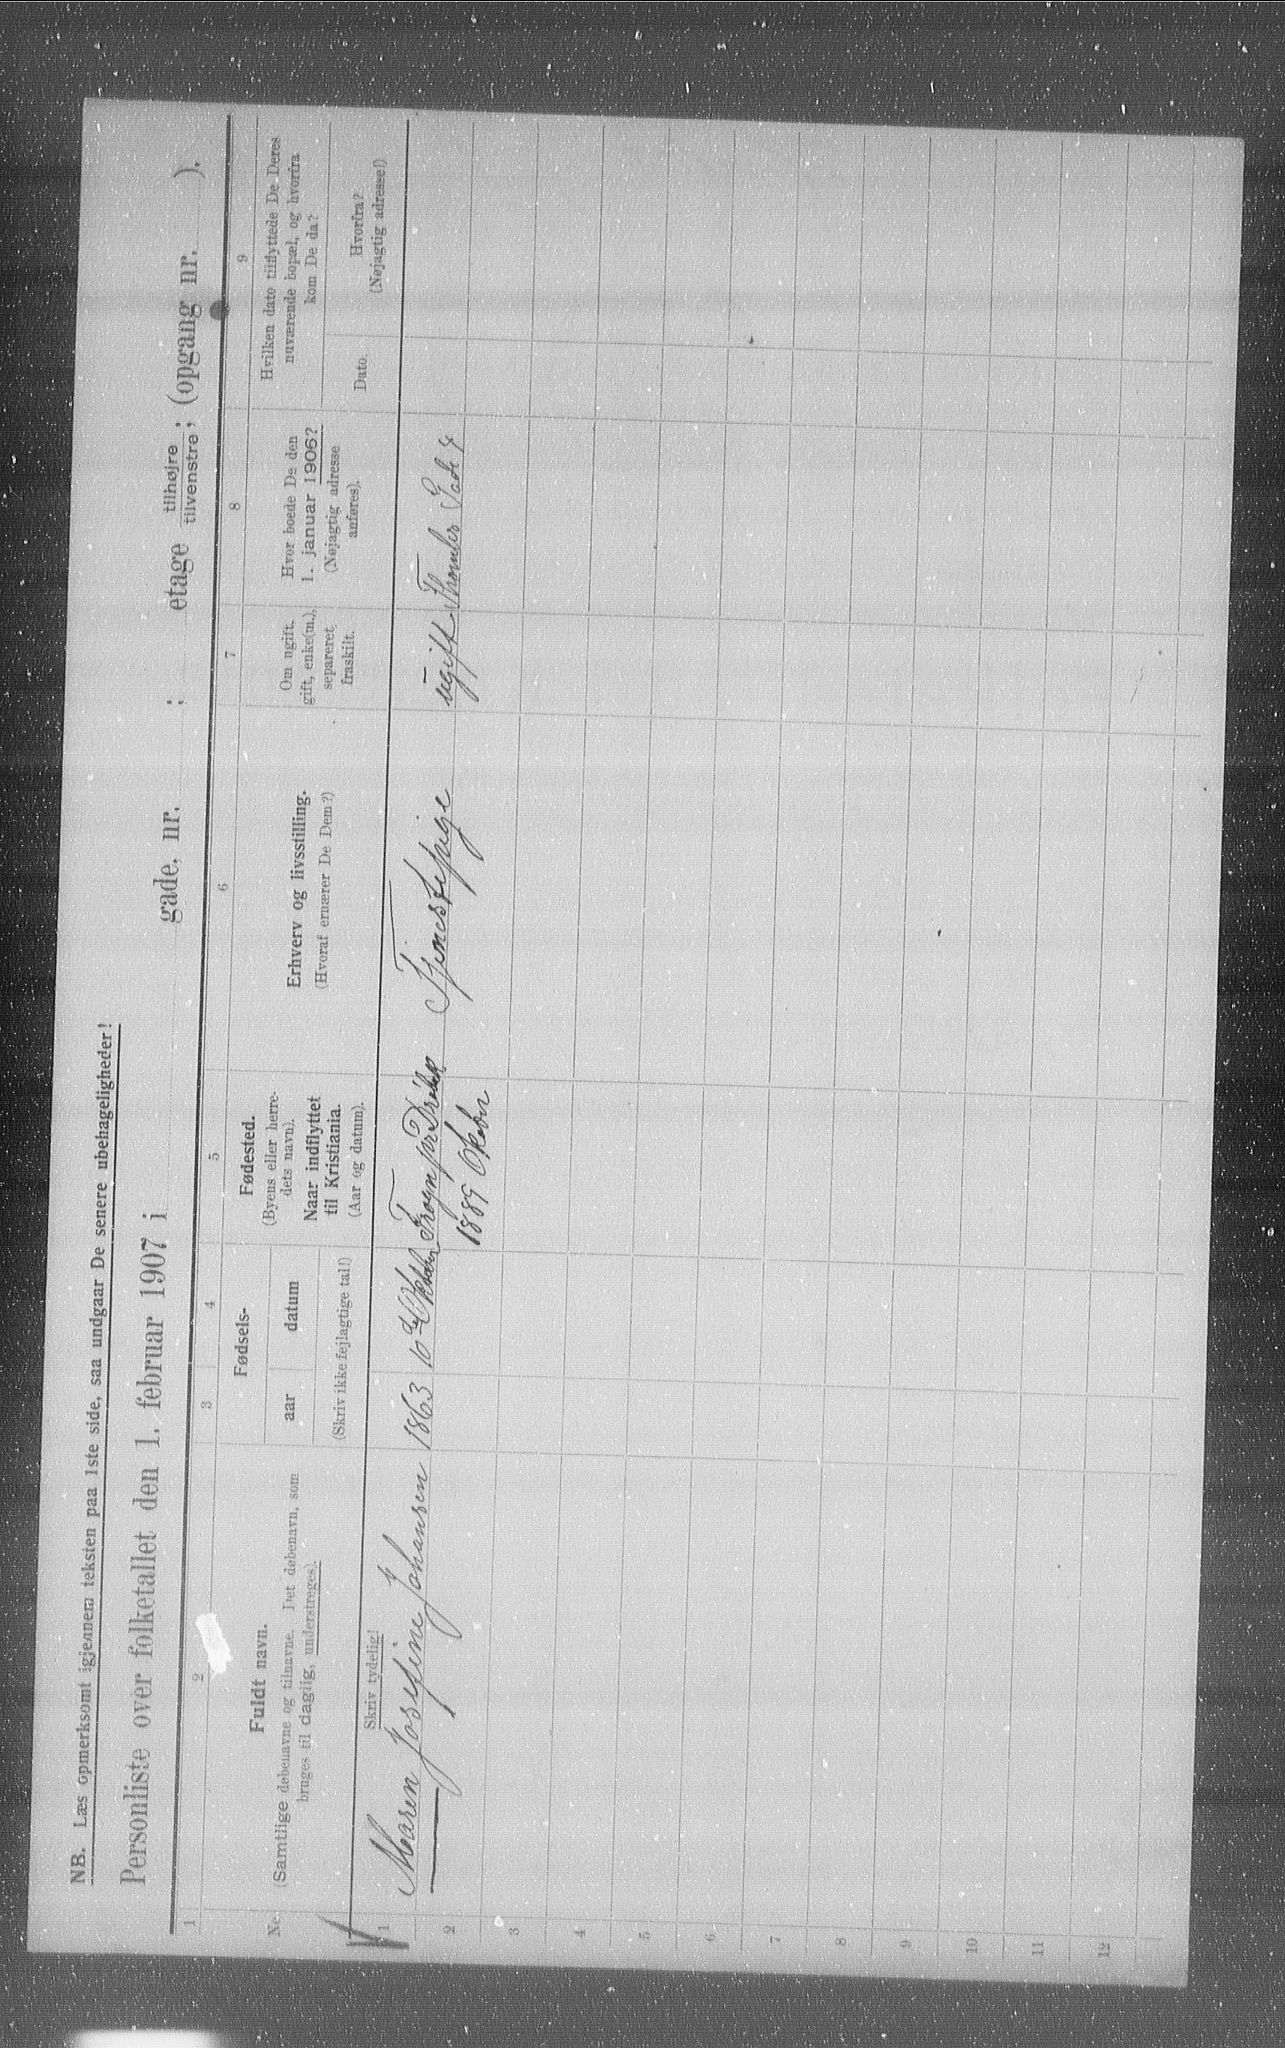 NB. Læs opmerksomt igjennem teksten paa 1ste side, saa undgaar De senere ubehageligheder!
Personliste over folketallet den 1. februar 1907 i gade, nr. ; etage tilhøjre tilvenstre; (opgang nr. ).
1 2 3 4 5 6 7 8 9
Ne.
Fuldt navn.
(Samtlige døbenavne og tilnavne. Det døbenavn, som
bruges til daglig, understreges).
Fødsels-
aar datum
(Skriv ikke fejlagtige tal!)
Fødested.
(Byens eller herre-
dets navn).
Naar indflyttet
til Kristiania.
(Aar og datum).
Erhverv og livsstilling.
(Hvoraf ernærer De Dem?)
Om ugift,
gift, enke(m.),
separeret,
fraskilt.
Hvor boede De den
1. januar 1906?
(Nøjagtig adresse
anføres).
Hvilken dato tilflyttede De Deres
nuværende bopæl, og hvorfra
kom De da?
Dato.
Hvorfra?
(Nøjagtig adresse!)
Skriv tydelig!
1 Maren Josefine Johansen 1863 10de Oktober Frogn pr Drøbak Tjenestepige ugift Thomles Gade 4
1889 Oktbr
2
3
4
5
6
7
8
9
10
11
12